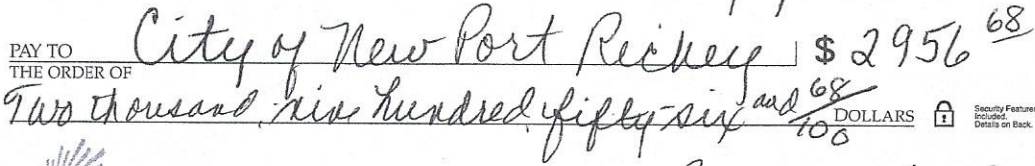 PAY TO THE ORDER OF City of New Port Richey $ 2956 68
Two thousand, nine hundred, fifty-six and 68/100 DOLLARS Security Features Included. Details on Back.